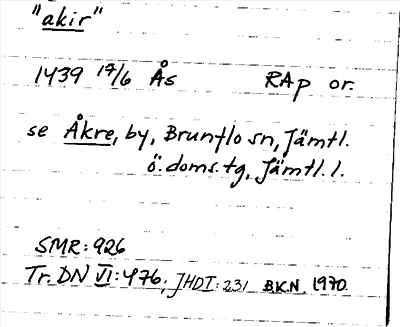 "akir"
1439 17/6 Ås RAp or.
se Åkre, by, Brunflo sn, Jämtl.
ö. doms. tg, Jämtl. l.
SMR: 926
Tr. DN VI: 476; JHDI: 231 B.K.N. 1970